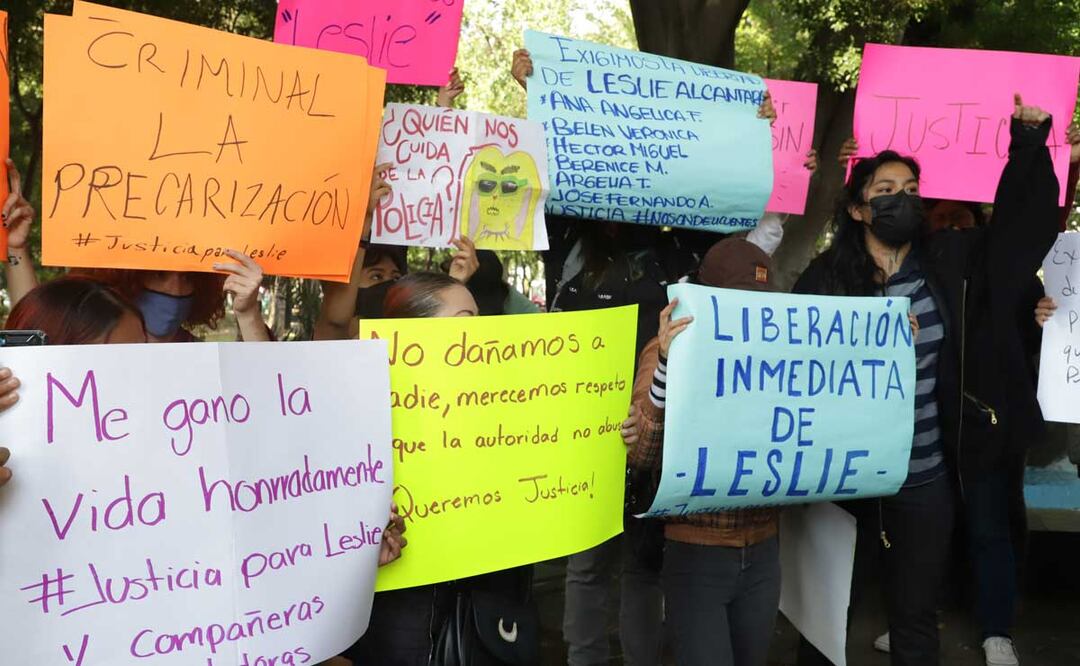 "Leslie"
CRIMINAL
LA
PRECARIZACIÓN
#Justicia para Leslie
¿QUIÉN NOS
CUIDA
DE LA
POLICIA?
EXIGIMOS LA LIBERTAD
DE LESLIE ALCANTARA
*ANA ANGELICA F.
*BELEN VERONICA
*HECTOR MIGUEL
BERENICE M.
ARGELIA T.
JOSE FERNANDO A.
JUSTICIA #NOSONDELICUENTES
JUSTICIA
Me gano la
vida honrradamente
#Justicia para Leslie
Y compañeras
No dañamos a
adie, merecemos respeto
que la autoridad no abuse
Queremos Justicia!
LIBERACIÓN
INMEDIATA
DE
-LESLIE-